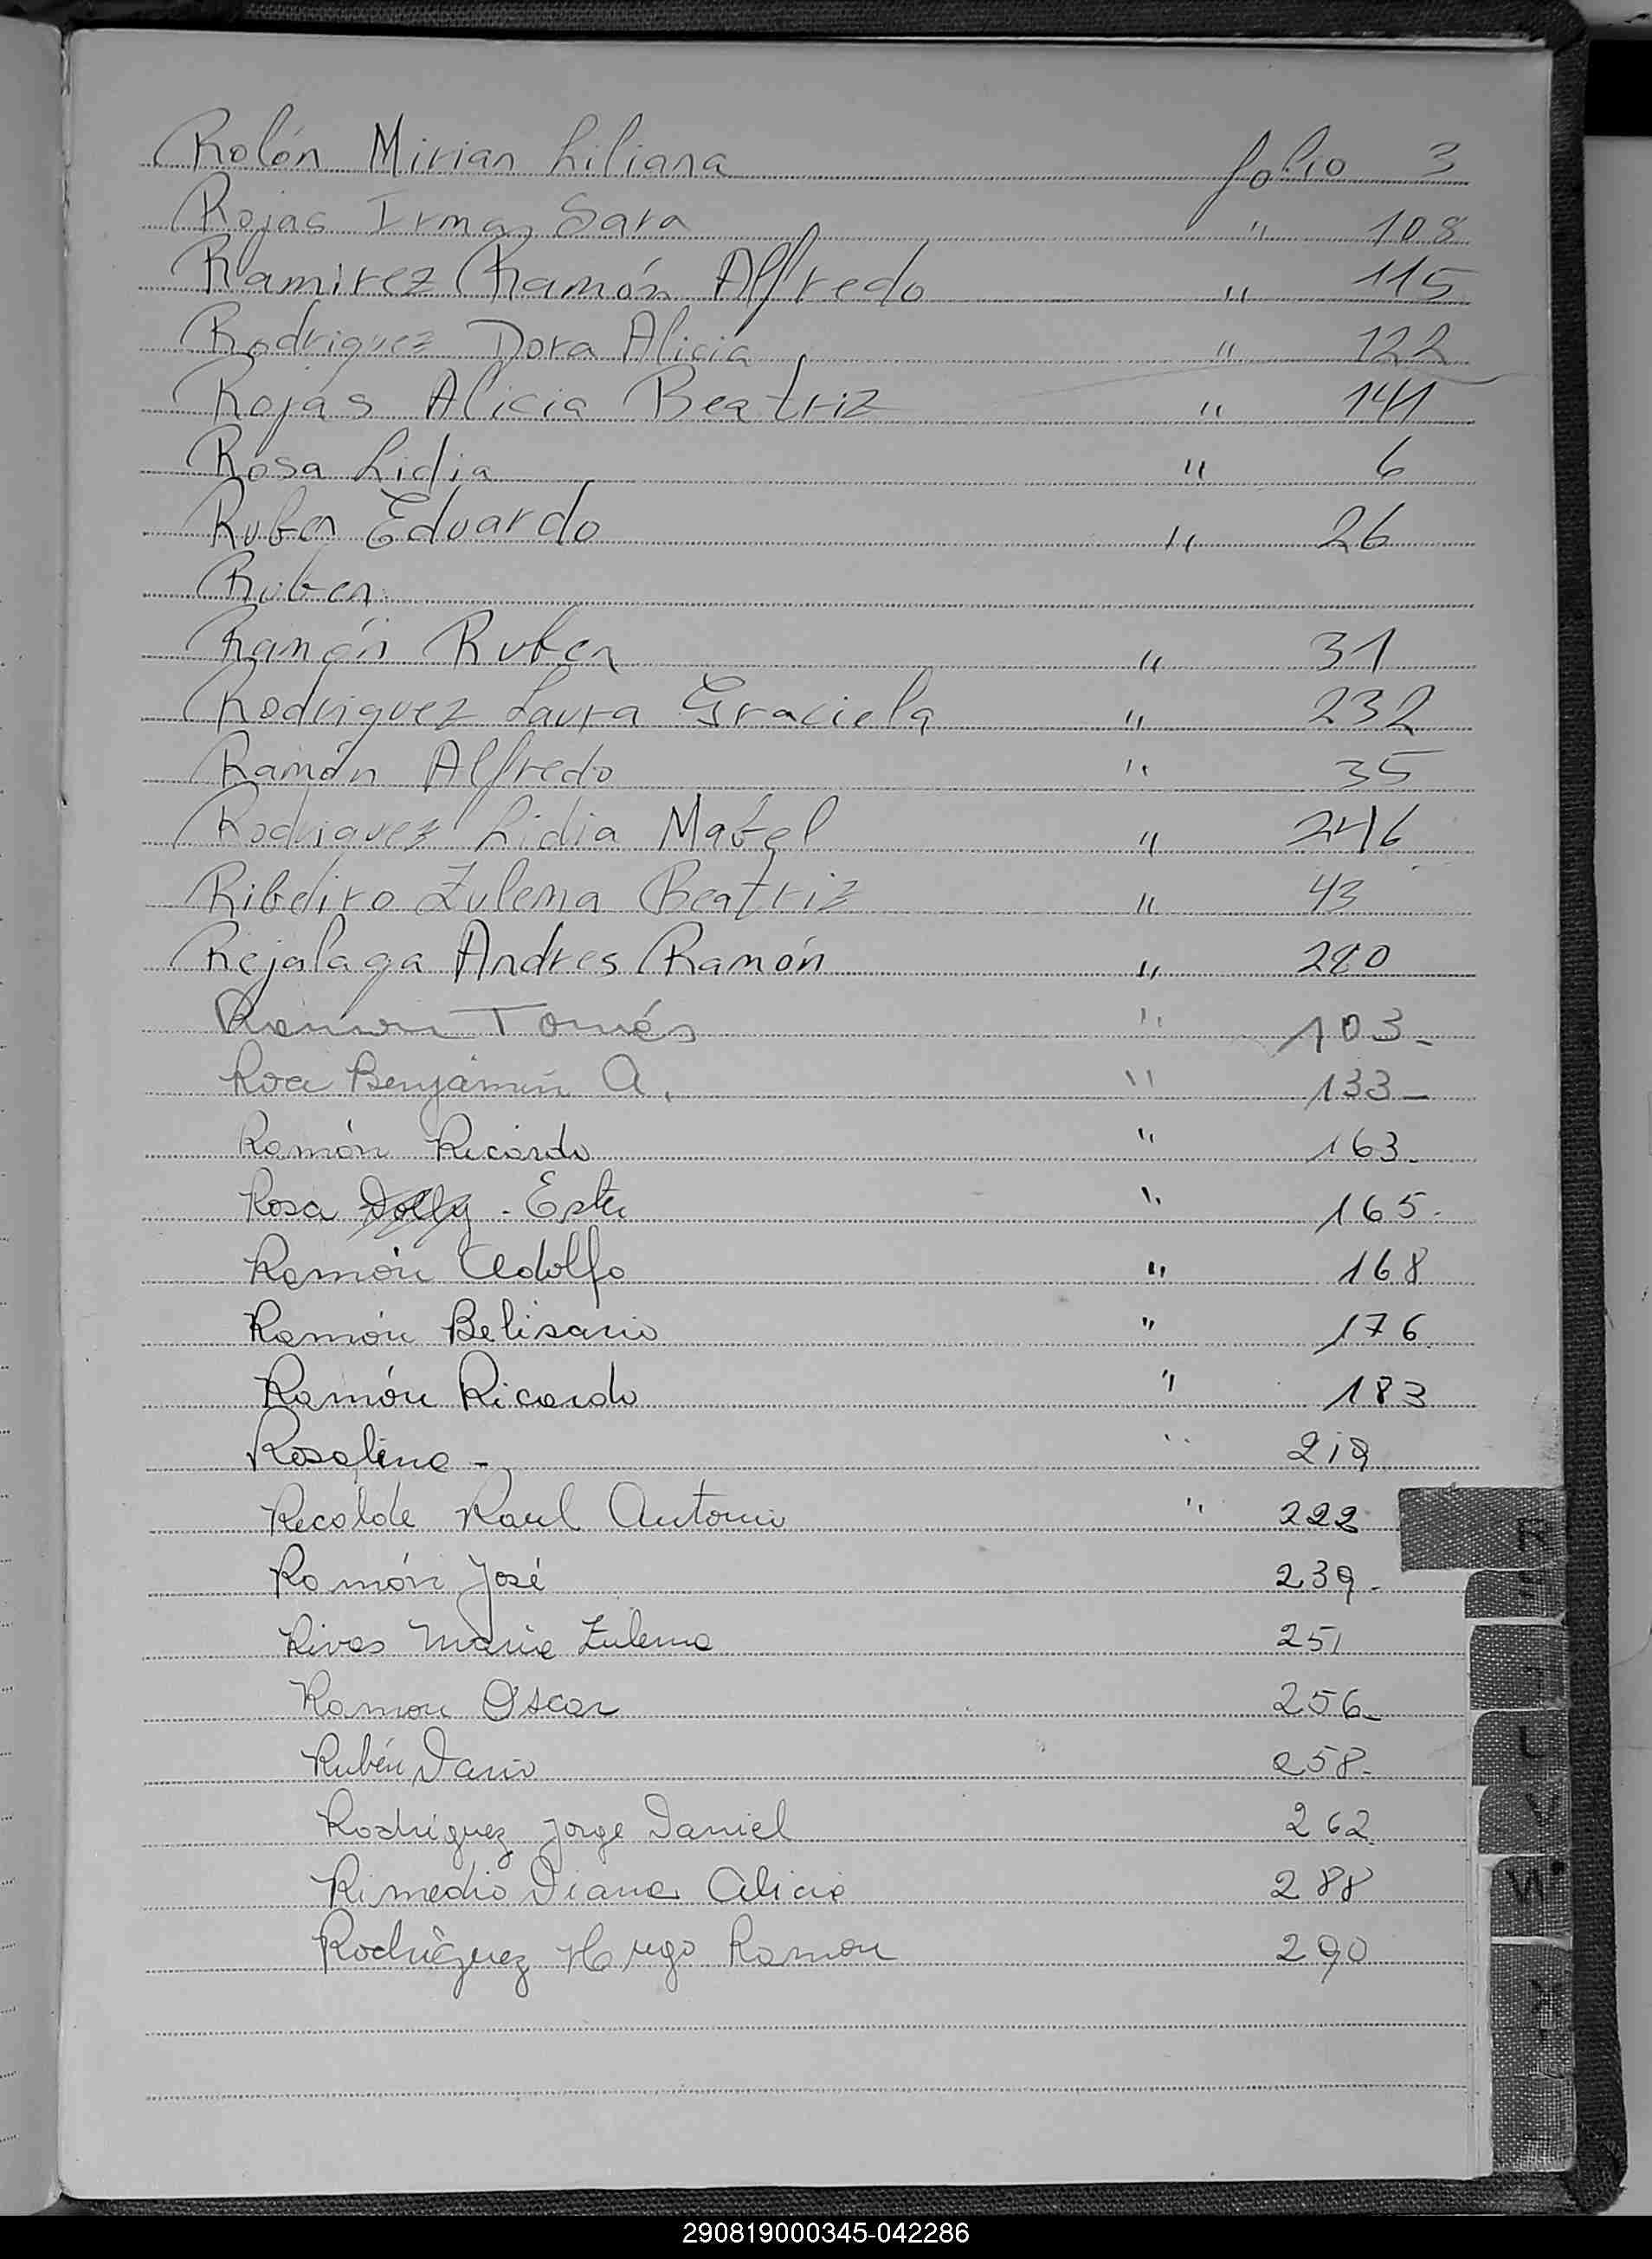 Rolón Mirian Liliana folio 3
Rojas Irma Sara " 108
Ramirez Ramón Alfredo " 115
Rodriguez Dora Alicia " 122
Rojas Alicia Beatriz " 141
Rosa Lidia " 6
Ruben Eduardo " 26
Ruben
Ramón Ruben " 31
Rodriguez Laura Graciela " 232
Ramón Alfredo " 35
Rodriguez Lidia Mabel " 246
Ribeiro Zulema Beatriz " 43
Rejalaga Andres Ramón " 280
Ramon Tomás " 103-
Roa Benjamín A. " 133-
Ramón Ricardo " 163-
Rosa Dolly - Ester " 165-
Ramón Adolfo " 168
Ramón Belisario " 176
Ramón Ricardo " 183
Rosalina - " 219
Recalde Raul Antonio " 222
Ramón José 239-
Rivas Maria Zulema 251
Ramon Oscar 256-
Rubén Dario 258-
Rodriguez Jorge Daniel 262
Rimedio Diana Alicia 288
Rodríguez Hugo Ramon 290
R
U
V
W
X
290819000345-042286